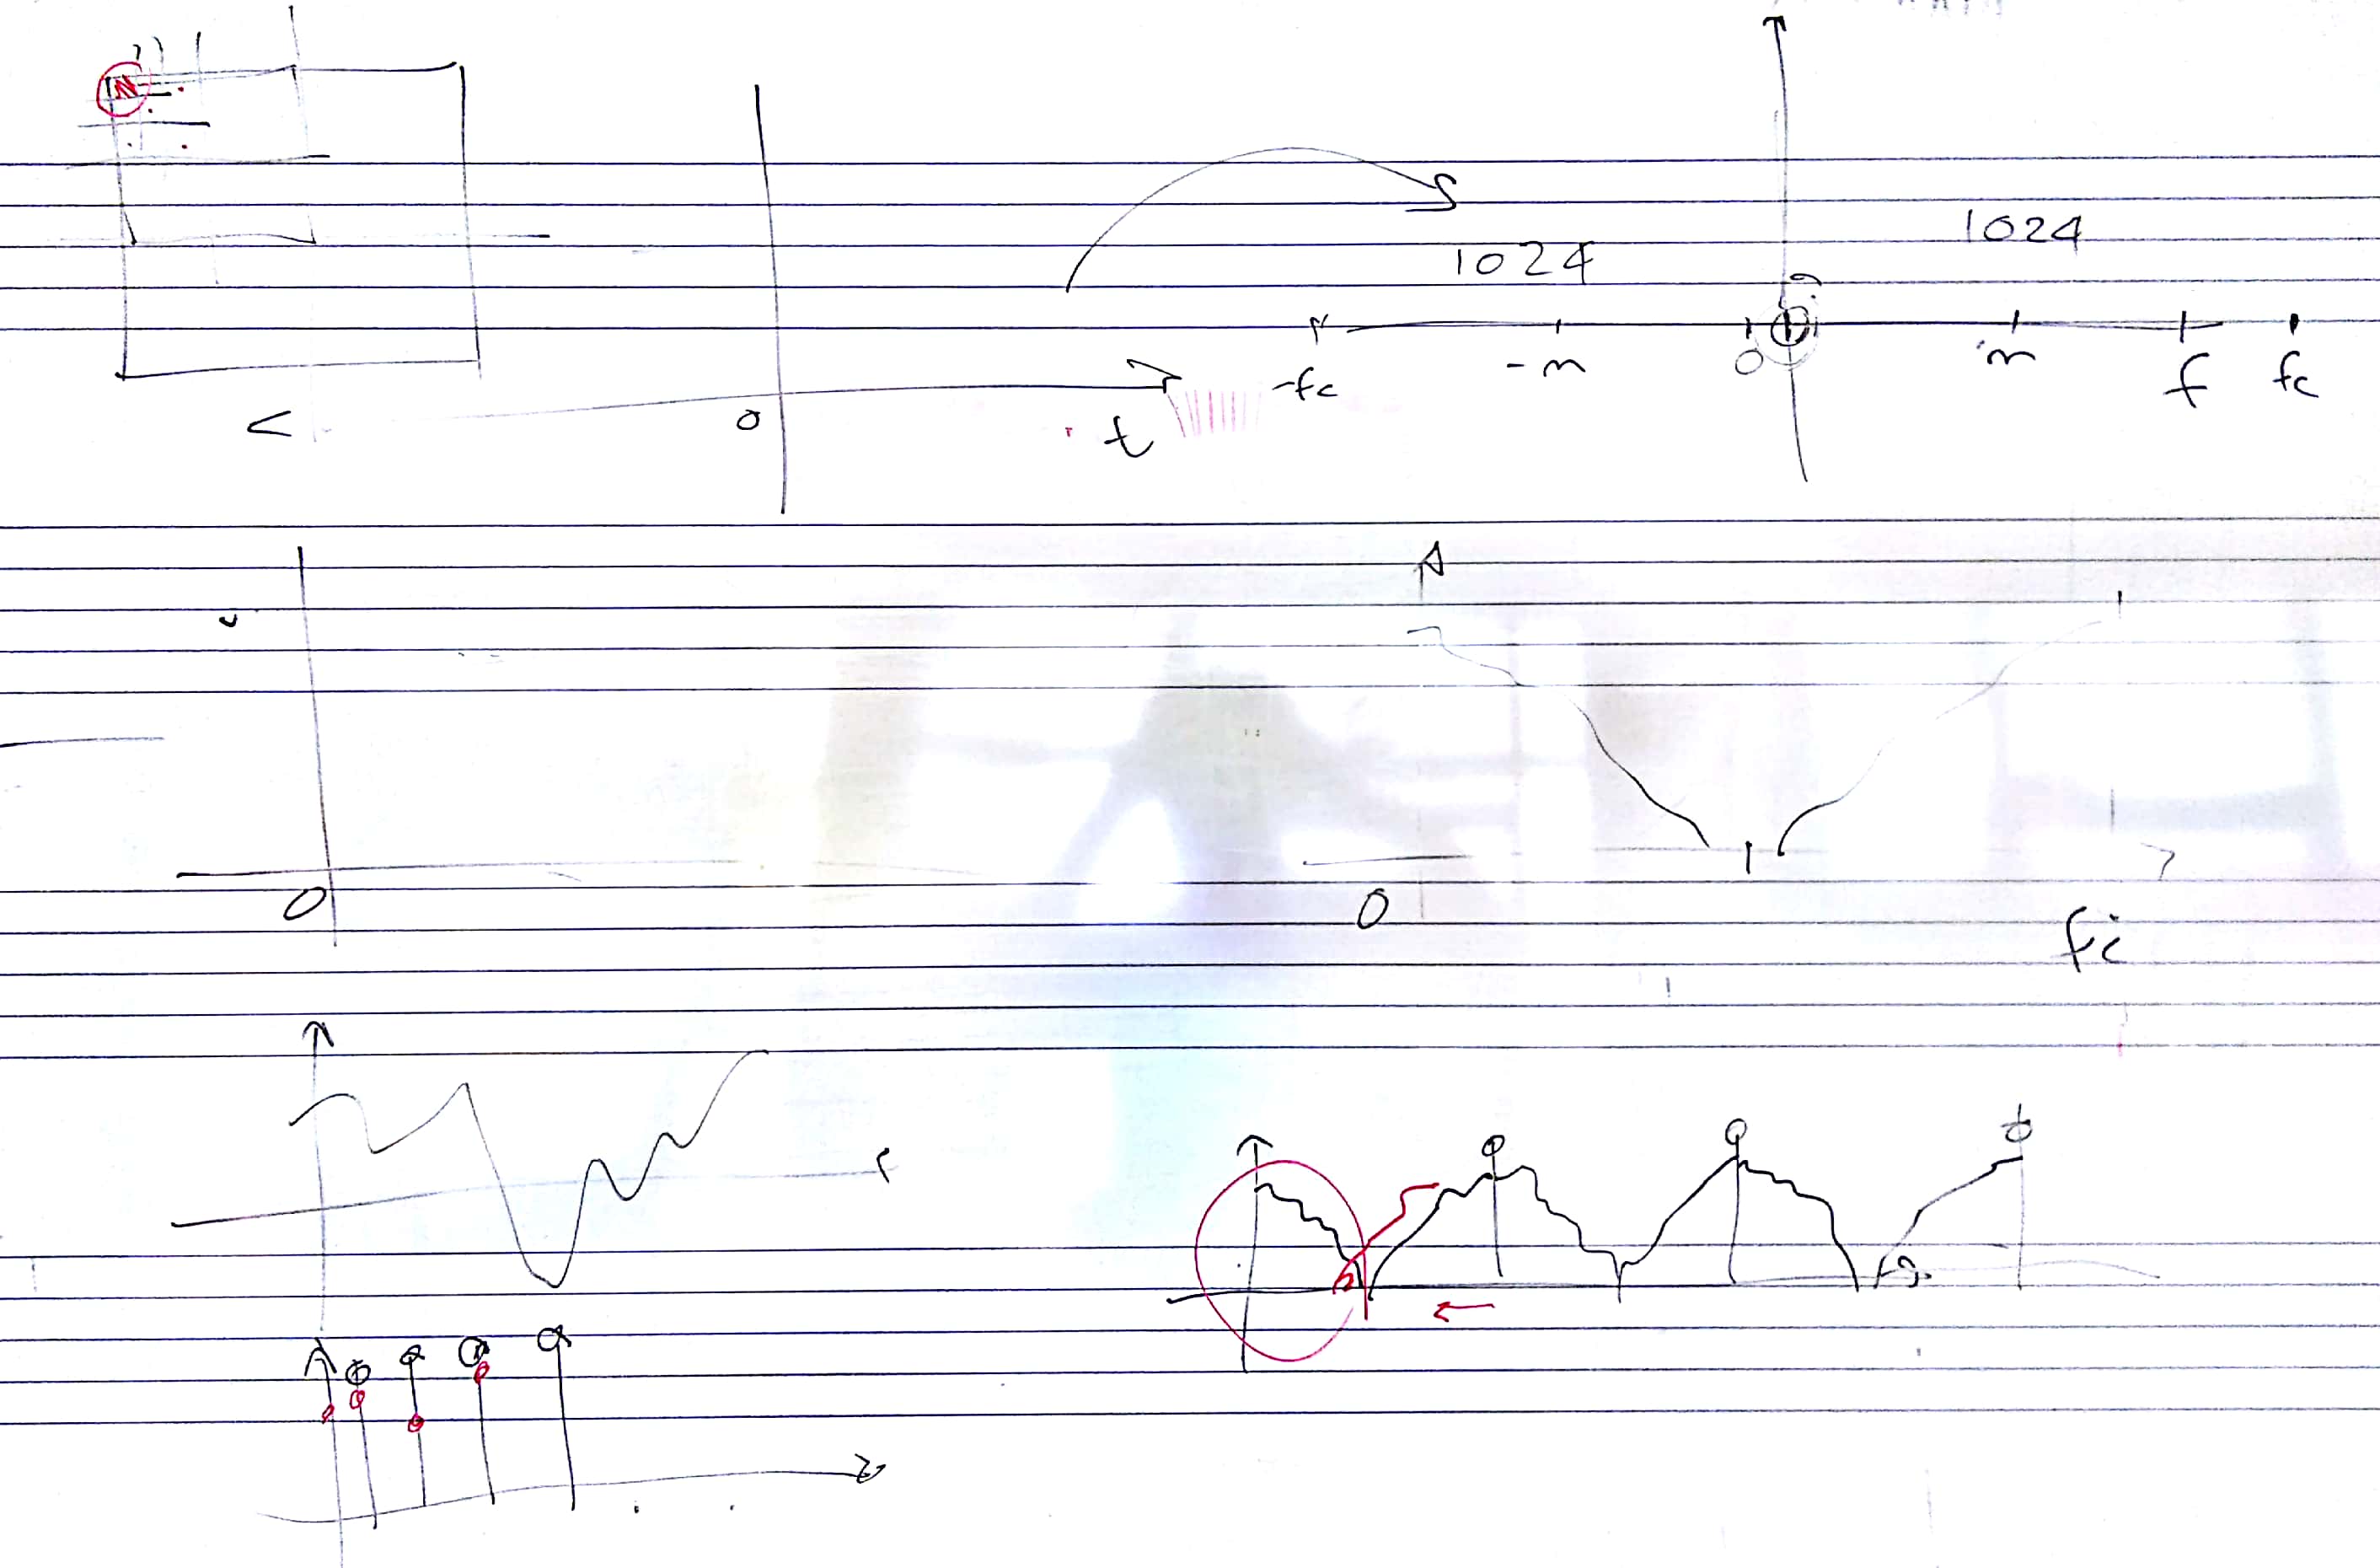 1024
1024
-fc -m 0 m f fc
0 t
0
0 fc